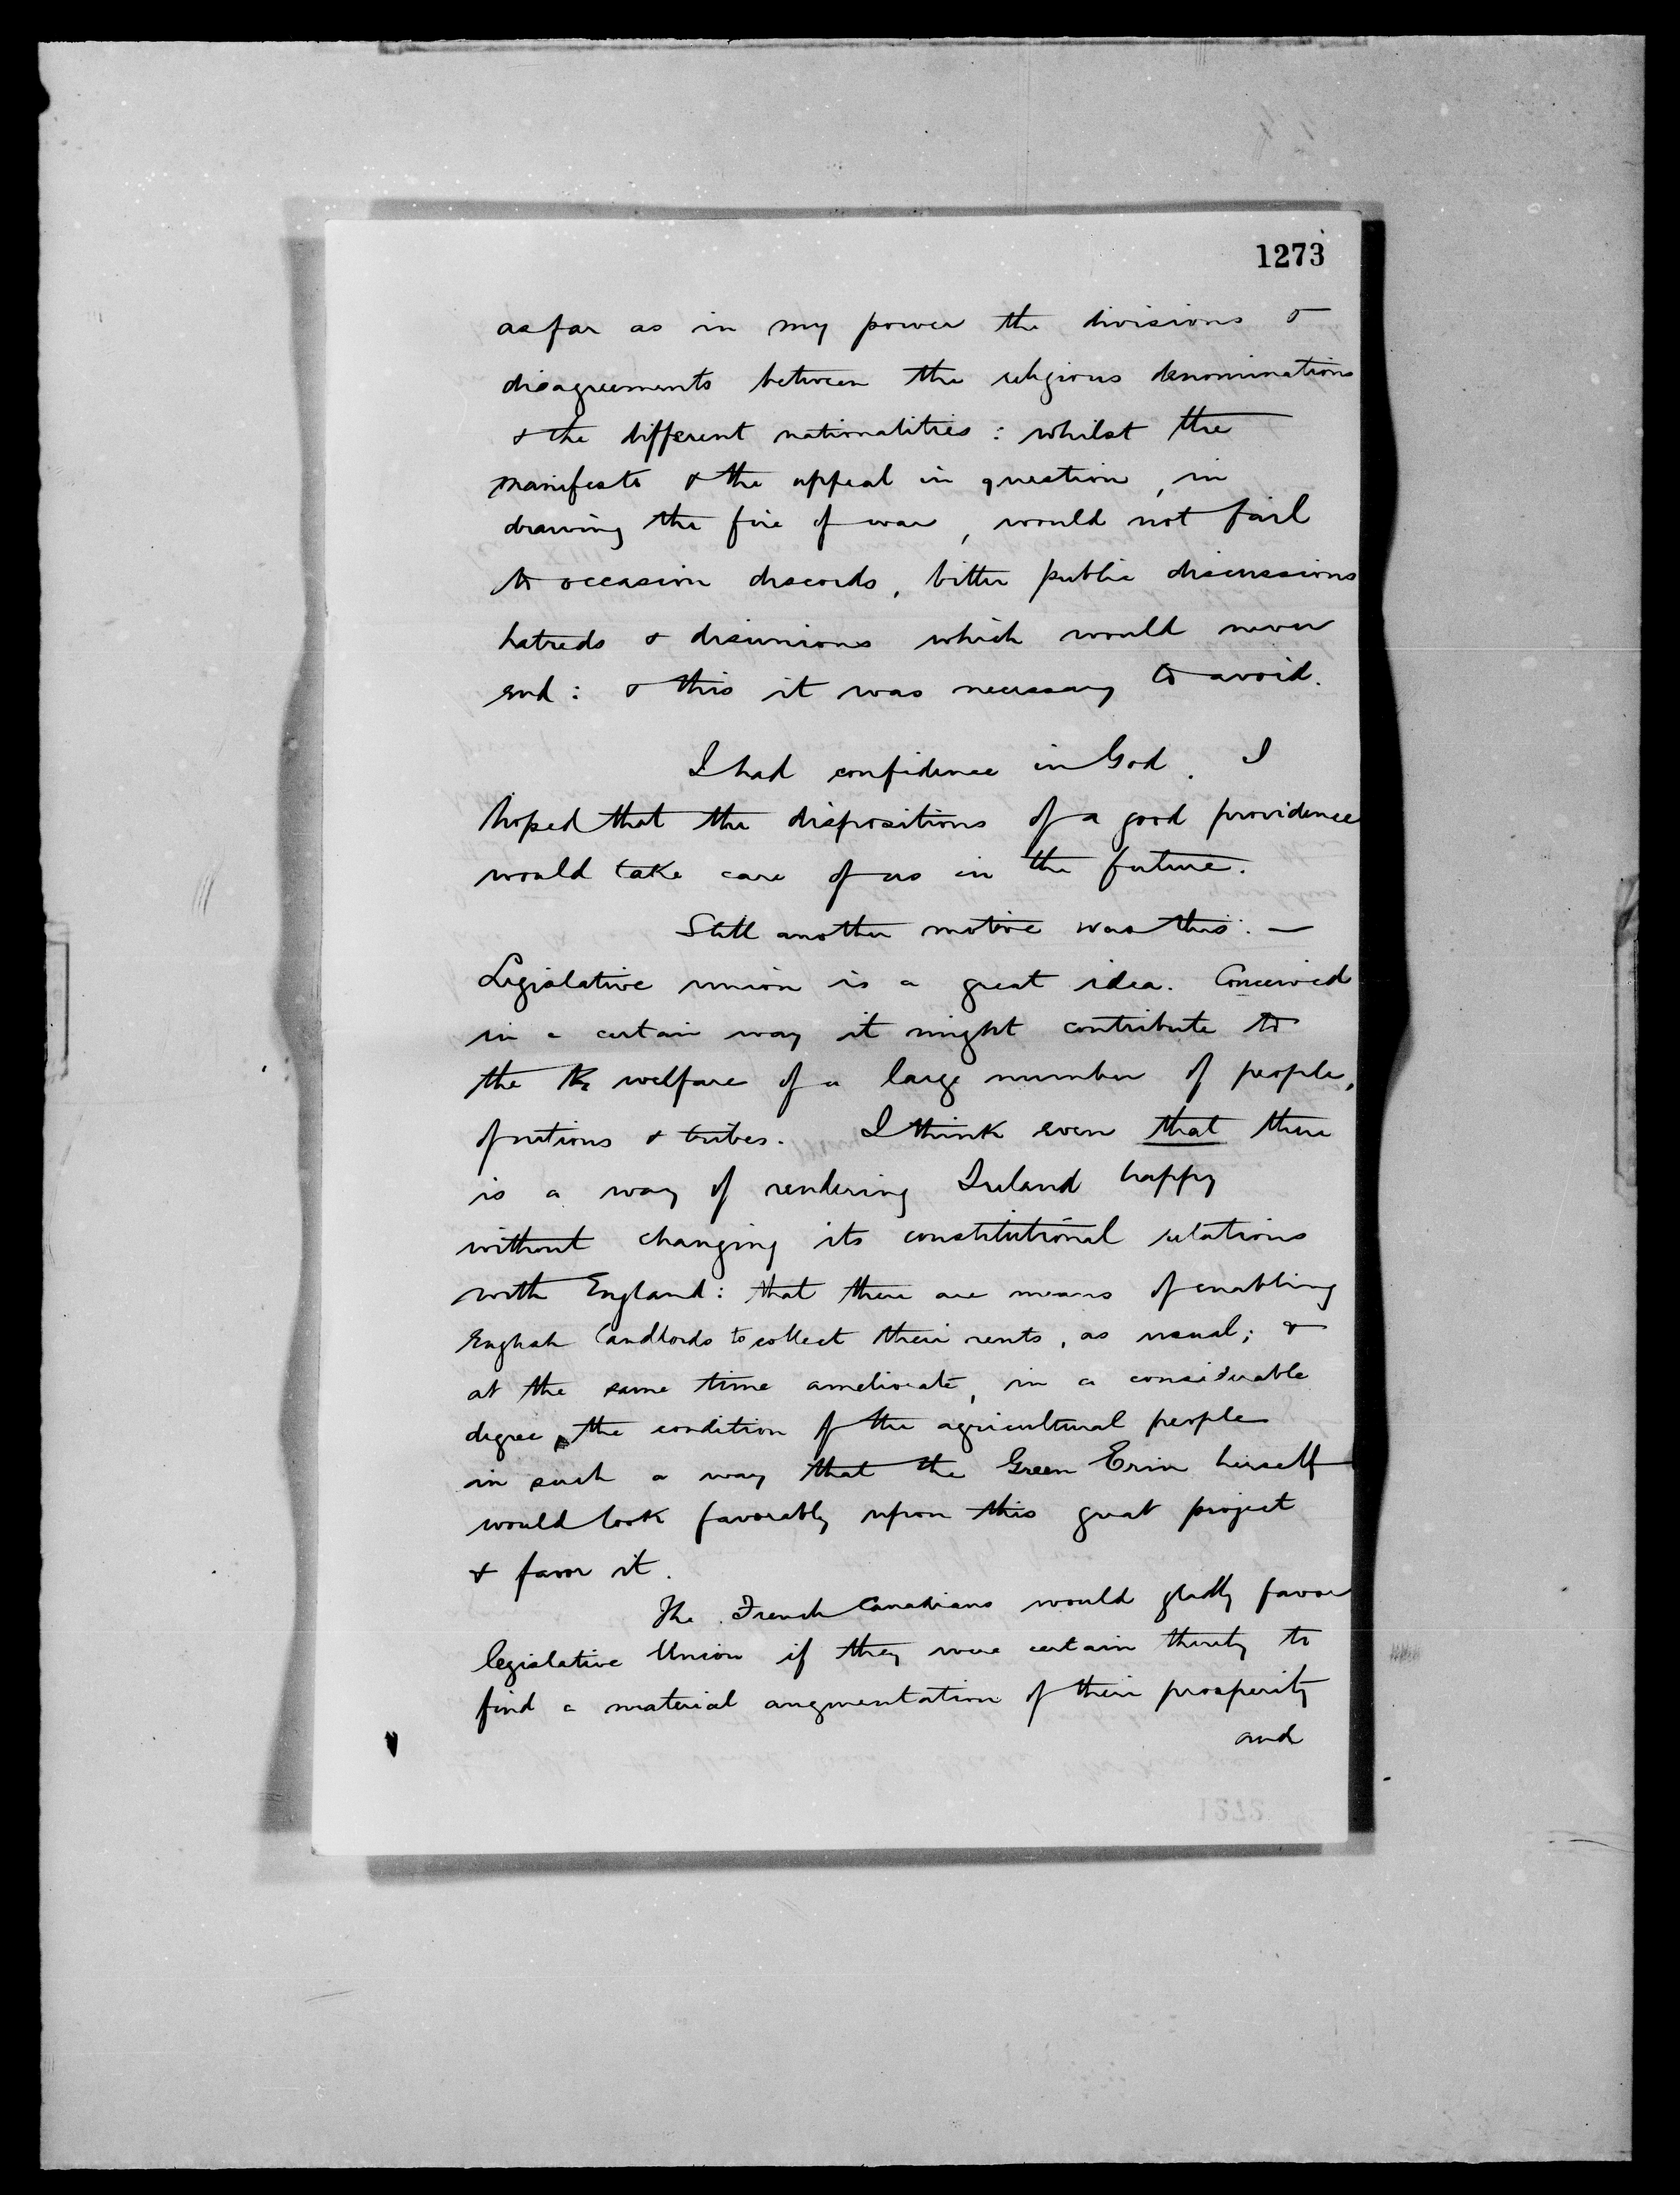 1273
as far as in my power the divisions &
disagreements between the religious denominations
& the different nationalities: whilst the
manifesto & the appeal in question, in
drawing the fire of war, would not fail
to occasion discords, bitter public discussions
hatreds & disunions which would never
end: & this it was necessary to avoid.
I had confidence in God. I
hoped that the dispositions of a good providence
would take care of us in the future.
Still another motive was this: —
Legislative union is a great idea. Conceived
in a certain way it might contribute to
the the welfare of a large number of people,
of nations & tribes. I think even that there
is a way of rendering Ireland happy
without changing its constitutional relations
with England: that there are means of enabling
English landlords to collect their rents, as usual; &
at the same time ameliorate, in a considerable
degree, the condition of the agricultural people
in such a way that the Green Erin herself
would look favorably upon this great project
& favor it.
The French Canadians would gladly favor
legislative Union if they were certain thereby to
find a material augmentation of their prosperity
and